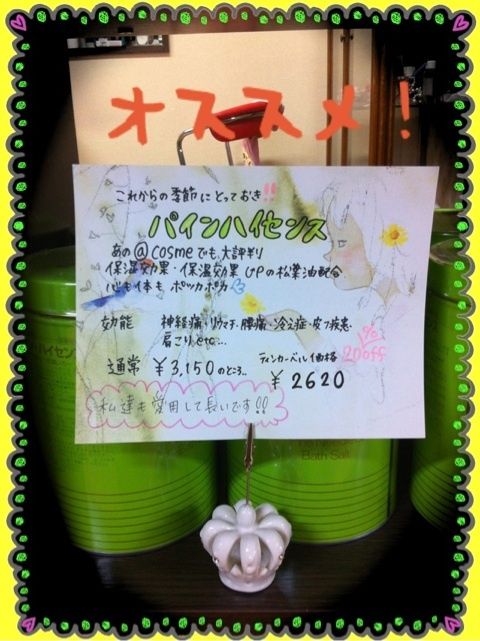 オススメ！
これからの季節にとっておき!!
パインハイセンス
あの@cosmeでも大評判
保湿効果・保温効果UPの松葉油配合
心も体もポッカポカ
効能 神経痛・リウマチ・腰痛・冷え症・皮フ疾患・
肩こりetc...
通常 ¥3,150のところ... ティンカーベル価格 20%off
¥2620
私達も愛用して長いです!!
Bath Salt